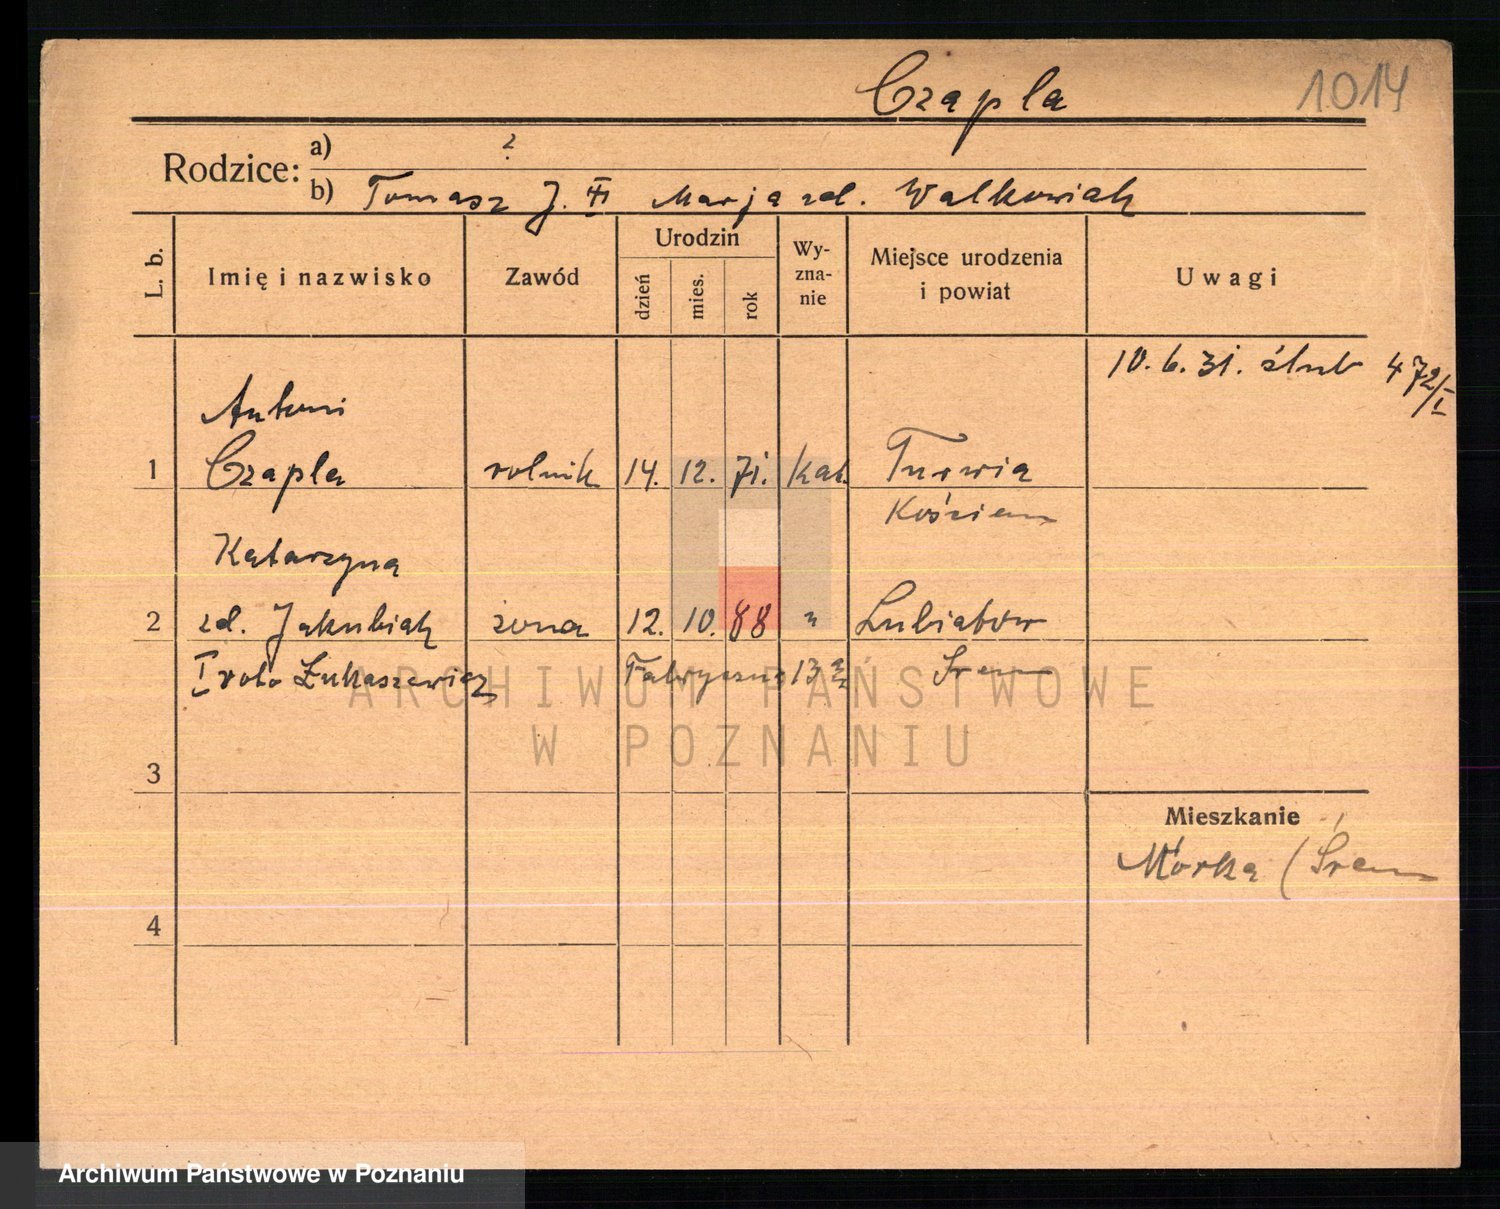 Czapla 1014
Rodzice:
a) ?
b) Tomasz J. Marja zd. Walkowiak
L. b.
Imię i nazwisko
Zawód
Urodzin
dzień
mies.
rok
Wy-
zna-
nie
Miejsce urodzenia
i powiat
Uwagi
10. 6. 31. ślub 472/I
Antoni
1 Czapla rolnik 14. 12. 71. kat. Turwia
Kościan
Katarzyna
2 zd. Jakubiak żona 12. 10. 88 " Lubiatów
I voto Łukaszewicz Fabryczna 13 Śrem
3
Mieszkanie
Mórka (Śrem
4
ARCHIWUM PAŃSTWOWE
W POZNANIU
Archiwum Państwowe w Poznaniu